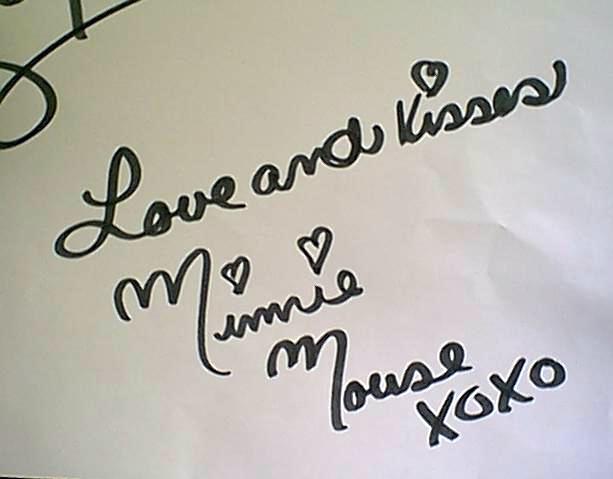 Love and kisses
Minnie
Mouse
XOXO